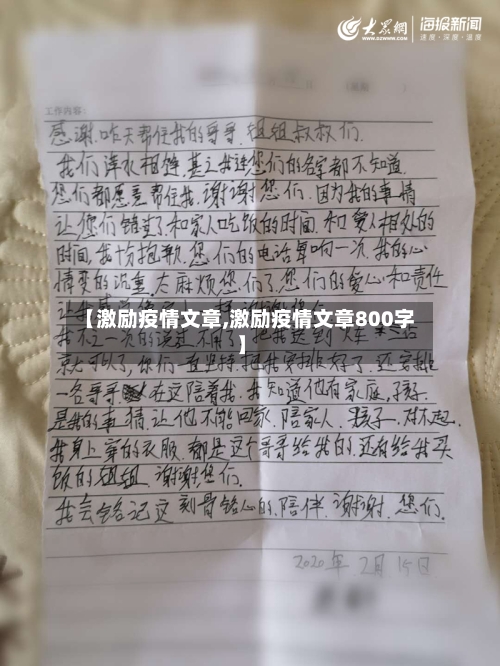 大众网
WWW.DZWWW.COM
海报新闻
速度·深度·温度
工作内容:
感谢昨天帮住我的哥哥.姐姐叔叔们.
我们萍水相逢.甚之我连您们的名字都不知道.
您们都愿意帮住我.谢谢您们.因为我的事情
让您们错过了和家人吃饭的时间.和爱人相处的
时间,我十分抱歉.您们的电话每响一次.我的心
情变的沉重.太麻烦您们了.您们的爱心和责任
【激励疫情文章,激励疫情文章800字
】
就可以了,你们一直坚持.把我安排好了.还安排
一名哥哥在这陪着我.我知道他有家庭,孩子.
是我的事情.让他不能回家.陪家人.孩子.对不起.
我身上穿的衣服.都是这个哥哥给我的.还有给我买
饭的姐姐.谢谢您们.
我会铭记这刻骨铭心的.陪伴.谢谢.您们.
2020年2月15日